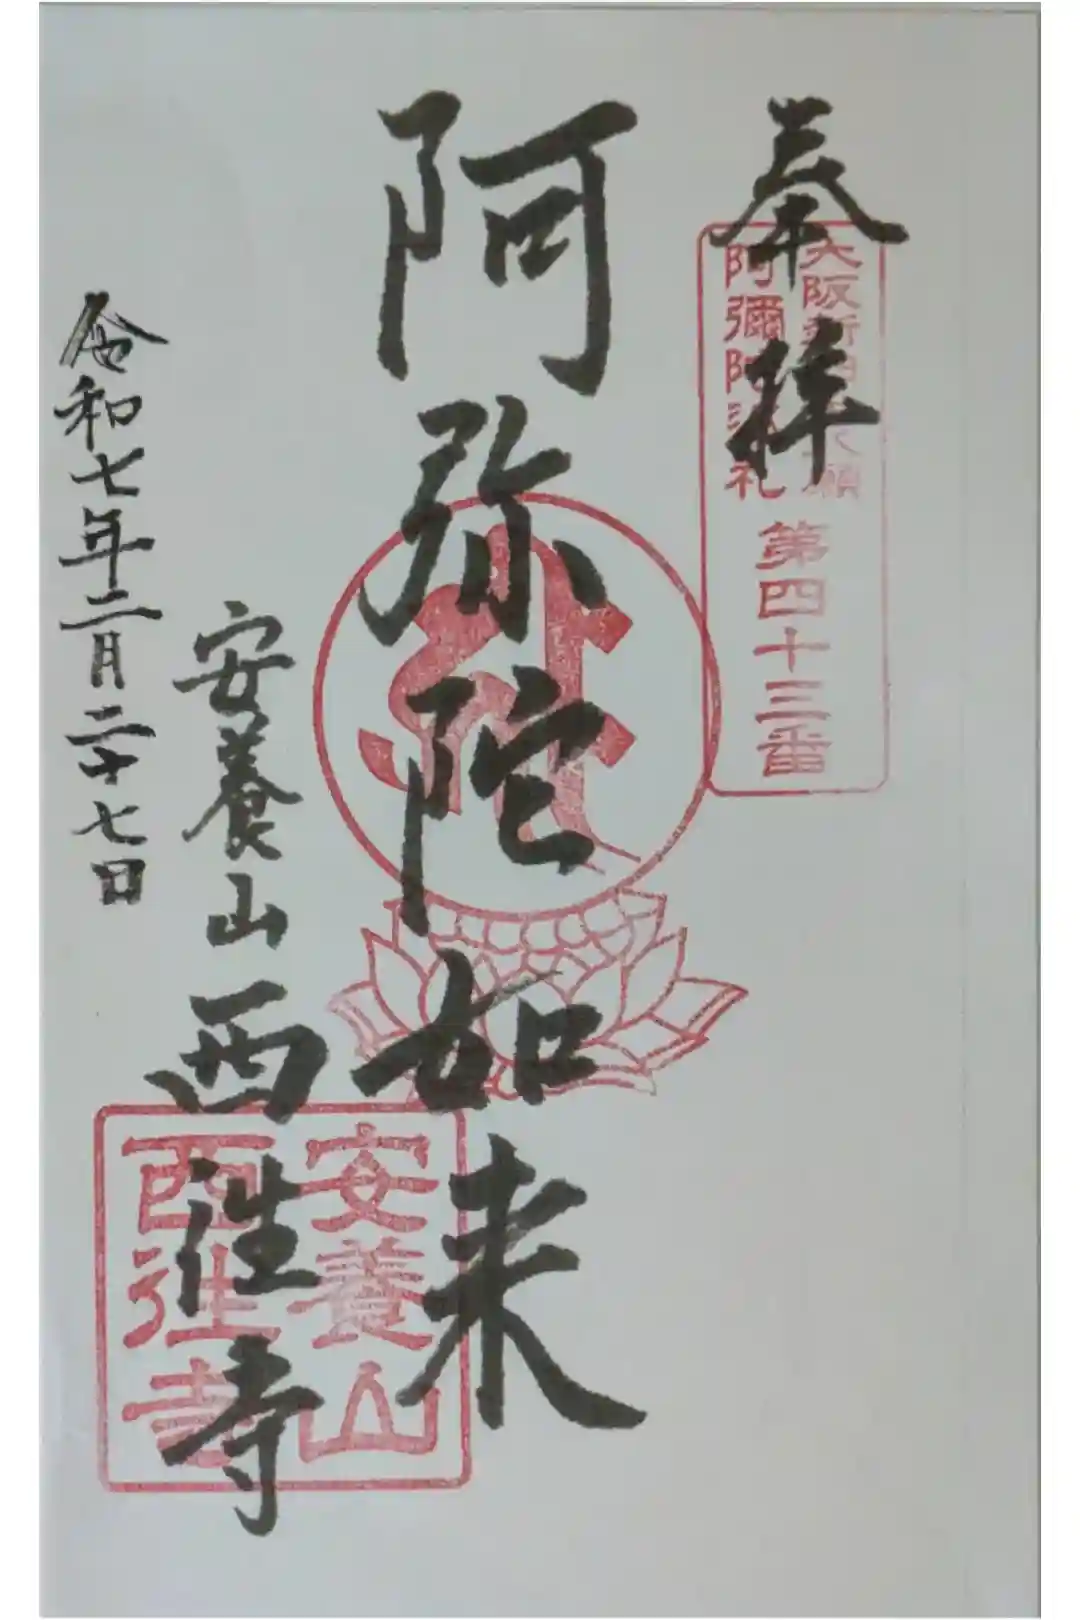 奉拝
大阪新四十八願
阿彌陀巡礼
第四十三番
阿弥陀如来
安養山 西往寺
令和七年二月二十七日
安養山
西往寺